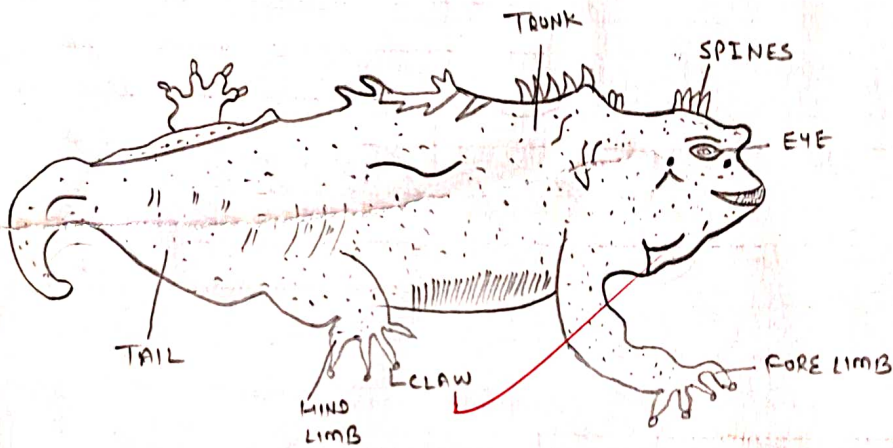 TRUNK
SPINES
EYE
TAIL
HIND
LIMB
CLAW
FORE LIMB